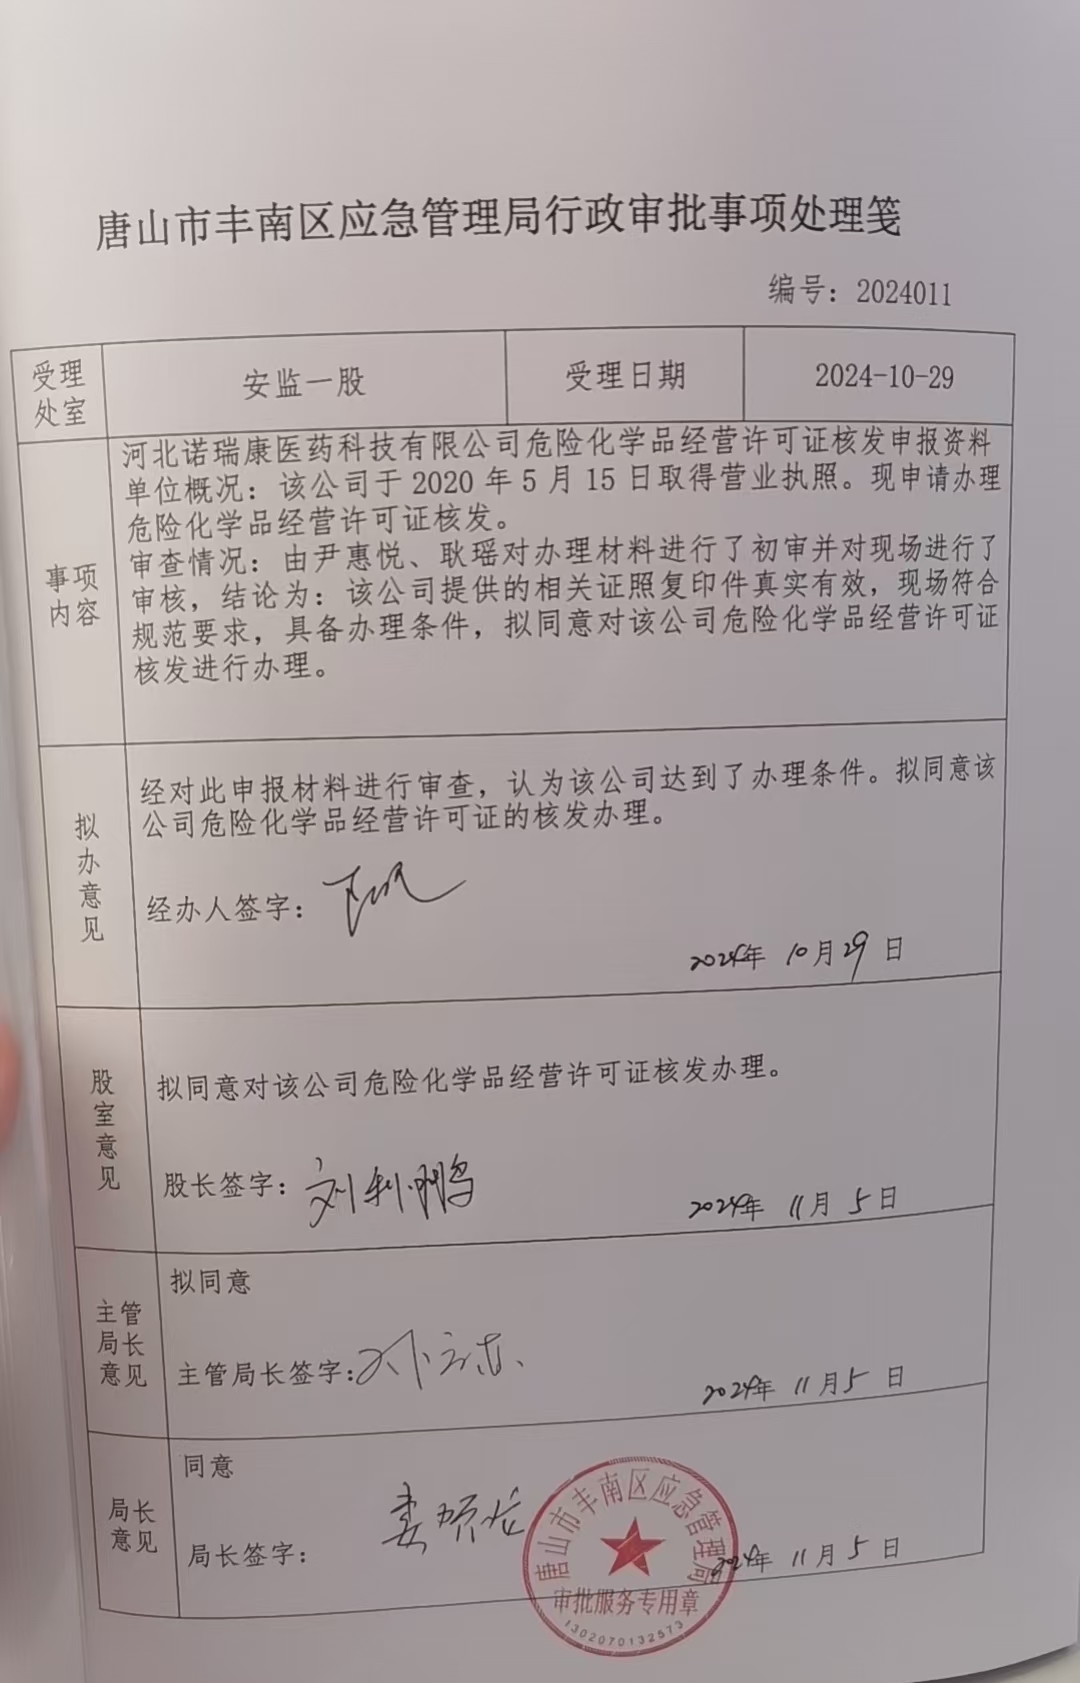 唐山市丰南区应急管理局行政审批事项处理笺
编号：2024011
受理
处室
安监一股
受理日期
2024-10-29
事项
内容
河北诺瑞康医药科技有限公司危险化学品经营许可证核发申报资料
单位概况：该公司于 2020 年 5 月 15 日取得营业执照。现申请办理
危险化学品经营许可证核发。
审查情况：由尹惠悦、耿瑶对办理材料进行了初审并对现场进行了
审核，结论为：该公司提供的相关证照复印件真实有效，现场符合
规范要求，具备办理条件，拟同意对该公司危险化学品经营许可证
核发进行办理。
拟
办
意
见
经对此申报材料进行审查，认为该公司达到了办理条件。拟同意该
公司危险化学品经营许可证的核发办理。
经办人签字：
2024年 10月29日
股
室
意
见
拟同意对该公司危险化学品经营许可证核发办理。
股长签字：刘利鹏
2024年 11月5日
主管
局长
意见
拟同意
主管局长签字：
2024年 11月5日
局长
意见
同意
局长签字：
2024年 11月5日
唐山市丰南区应急管理局
审批服务专用章
1302070132573